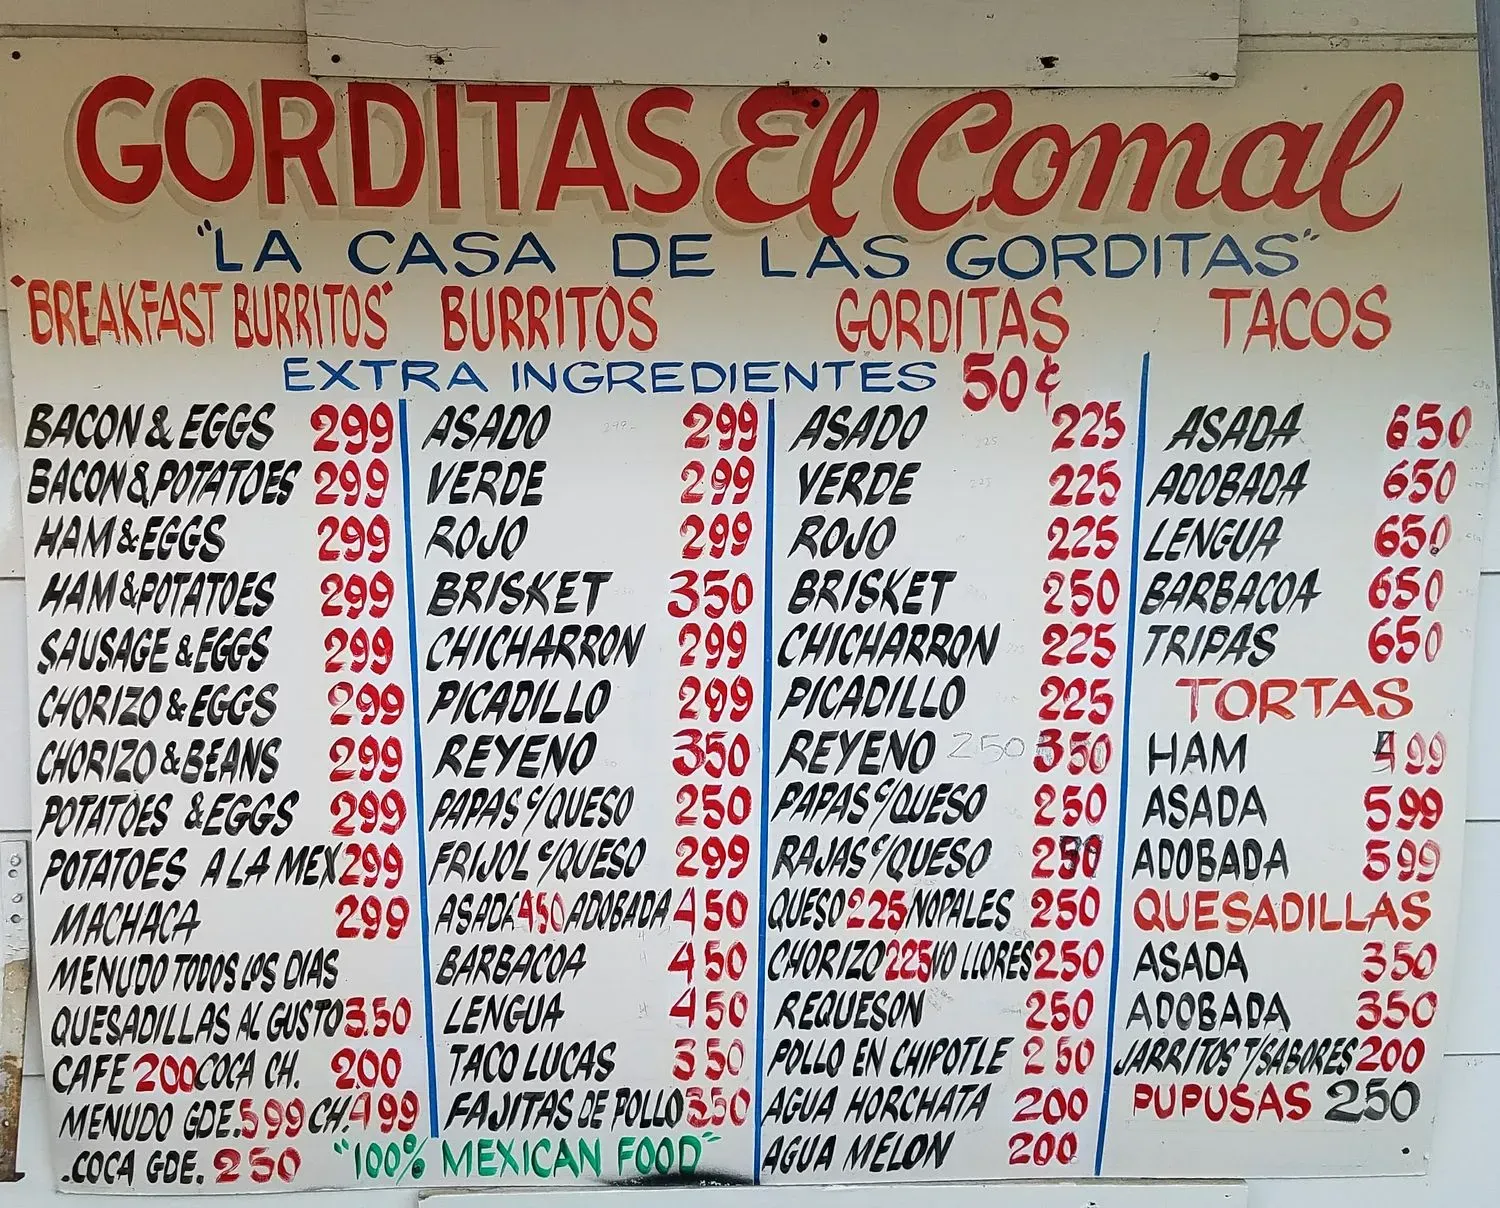 GORDITAS El Comal
"LA CASA DE LAS GORDITAS"
"BREAKFAST BURRITOS" BURRITOS GORDITAS TACOS
EXTRA INGREDIENTES 50¢
BACON & EGGS 299
BACON & POTATOES 299
HAM & EGGS 299
HAM & POTATOES 299
SAUSAGE & EGGS 299
CHORIZO & EGGS 299
CHORIZO & BEANS 299
POTATOES & EGGS 299
POTATOES A LA MEX 299
MACHACA 299
MENUDO TODOS LOS DIAS
QUESADILLAS AL GUSTO 3.50
CAFE 200 COCA CH. 200
MENUDO GDE. 599 CH. 499
.COCA GDE. 250
ASADO 299
VERDE 299
ROJO 299
BRISKET 350
CHICHARRON 299
PICADILLO 299
REYENO 350
PAPAS c/QUESO 250
FRIJOL c/QUESO 299
ASADA 450 ADOBADA 450
BARBACOA 450
LENGUA 450
TACO LUCAS 350
FAJITAS DE POLLO 350
"100% MEXICAN FOOD"
ASADO 225
VERDE 225
ROJO 225
BRISKET 250
CHICHARRON 225
PICADILLO 225
REYENO 250 350
PAPAS c/QUESO 250
RAJAS c/QUESO 250
QUESO 225 NOPALES 250
CHORIZO 225 NO LLORES 250
REQUESON 250
POLLO EN CHIPOTLE 250
AGUA HORCHATA 200
AGUA MELON 200
ASADA 650
ADOBADA 650
LENGUA 650
BARBACOA 650
TRIPAS 650
TORTAS
HAM 499
ASADA 599
ADOBADA 599
QUESADILLAS
ASADA 350
ADOBADA 350
JARRITOS T/SABORES 200
PUPUSAS 250